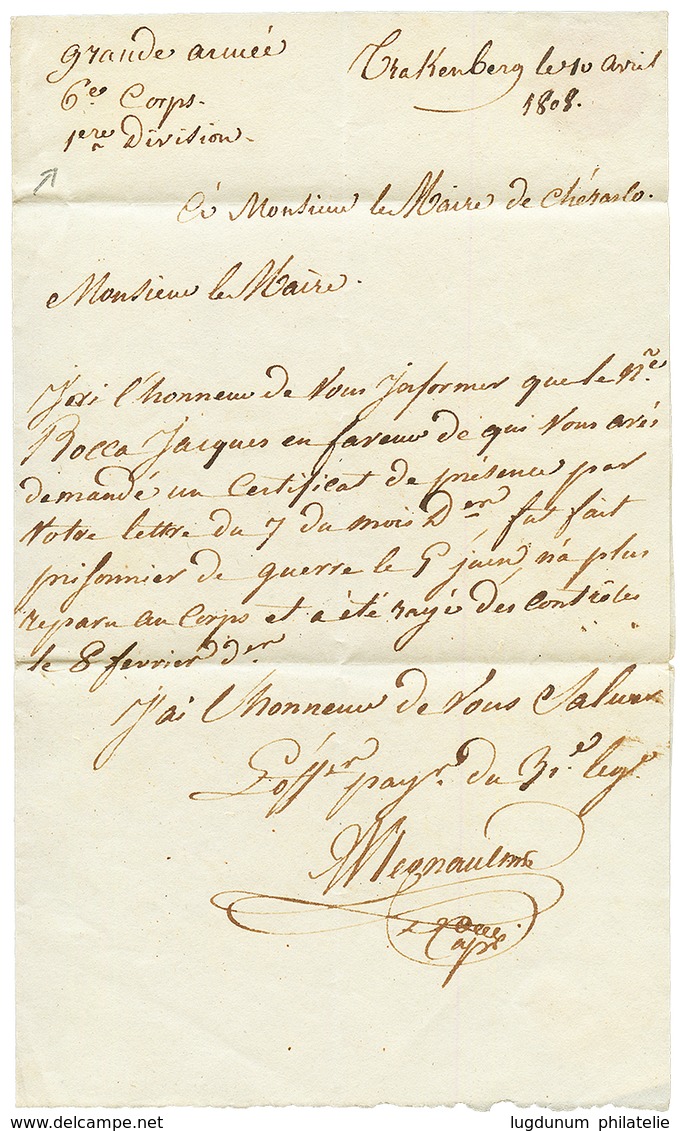 grande armée
6e Corps.
1ere Division.
Trakenberg le 10 avril
1808.
à Monsieur le Maire de Chérasco.
Monsieur le Maire.
J'ai l'honneur de Vous Informer que le né
Rocca Jacques en faveur de qui Vous avés
demandé un Certificat de présence par
Votre lettre du 7 du mois Der, fut fait
prisonnier de guerre le 5 juin, n'a plus
reparu au Corps et a été rayé des controles
le 8 fevrier der
J'ai l'honneur de Vous Saluer
L'offer payr. du 31.e leger
Capne
delcampe.net
lugdunum philatelie